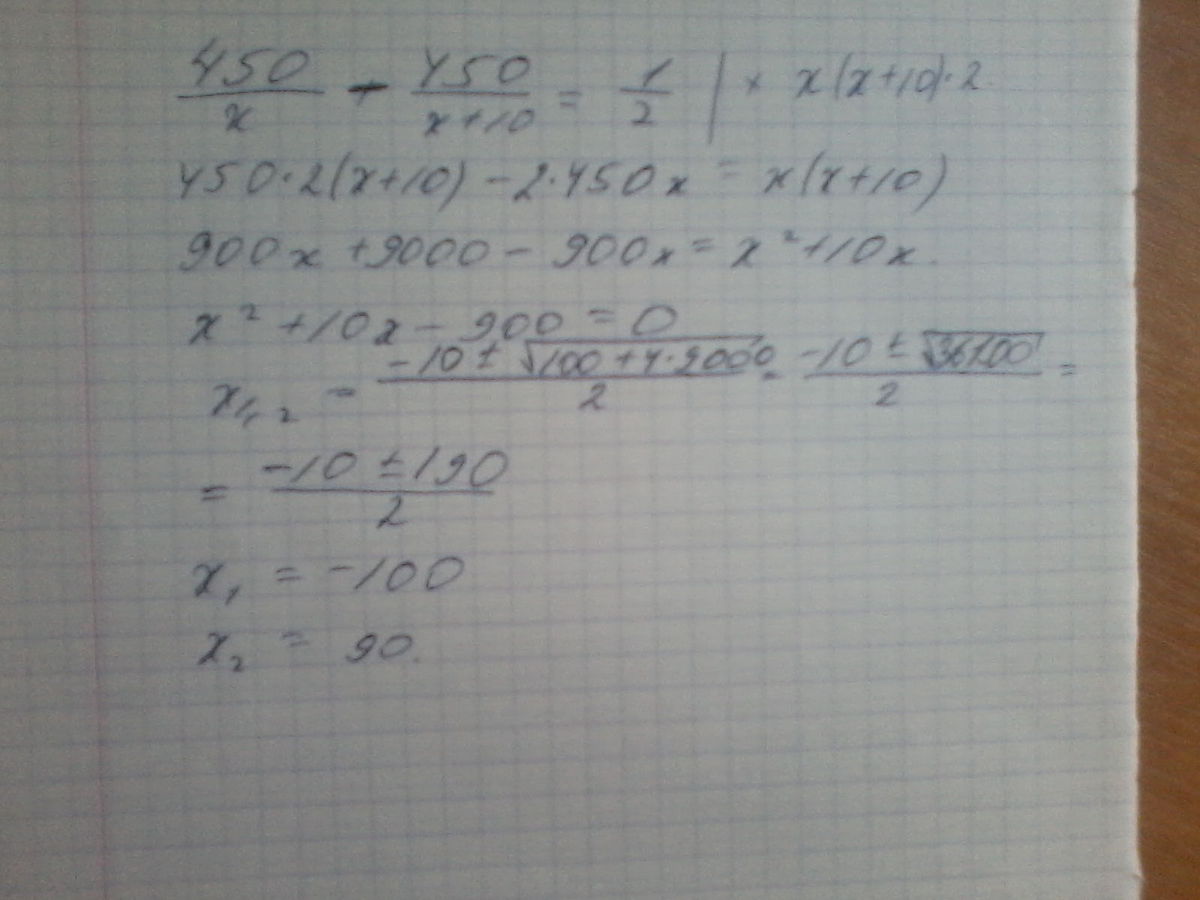 450/x - 450/(x+10) = 1/2 | × x(x+10)·2
450·2(x+10) - 2·450x = x(x+10)
900x + 9000 - 900x = x² + 10x.
x² + 10x - 900 = 0
x₁,₂ = (-10 ± √(100 + 4·9000))/2 = (-10 ± √36100)/2 =
= (-10 ± 190)/2
x₁ = -100
x₂ = 90.